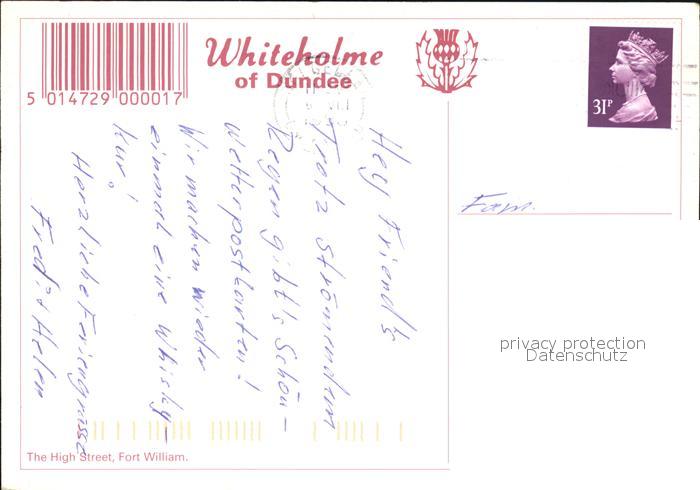 Whiteholme
of Dundee
5 014729 000017
31P
Hey Friends
Trotz strömendem
Regen gibt's Schön-
wetterpostkarten!
Wir machen wieder
einmal eine Whisky-
Kur!
Herzliche Feriengrüsse
Fredi + Helen
Fam.
privacy protection
Datenschutz
The High Street, Fort William.